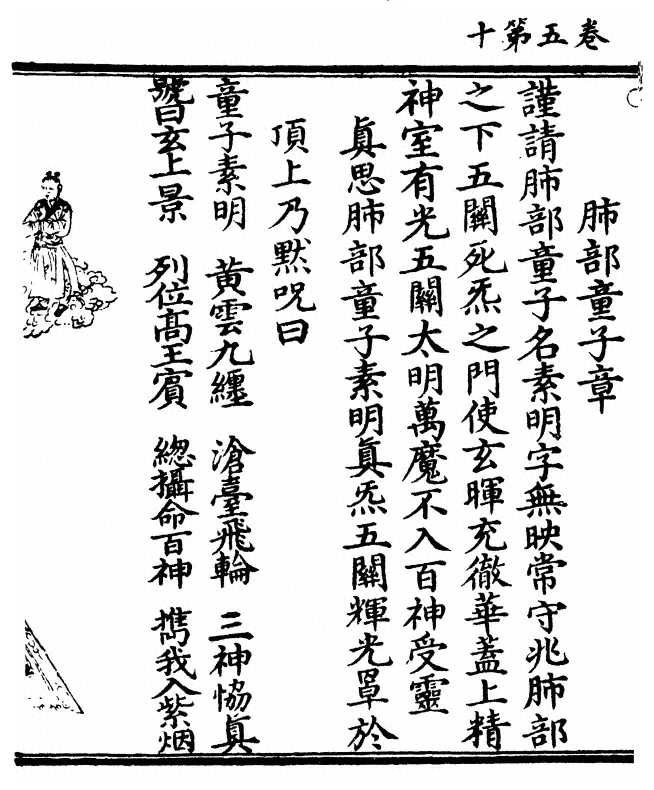 卷五第十
肺部童子章
謹請肺部童子名素明字無映常守兆肺部
之下五關死炁之門使玄暉充徹華蓋上精
神室有光五關太明萬魔不入百神受靈
眞思肺部童子素明眞炁五關輝光罩於
頂上乃默呪曰
童子素明 黃雲九纏 滄臺飛輪 三神恊眞
號曰玄上景 列位髙王賓 緫攝命百神 携我入紫烟